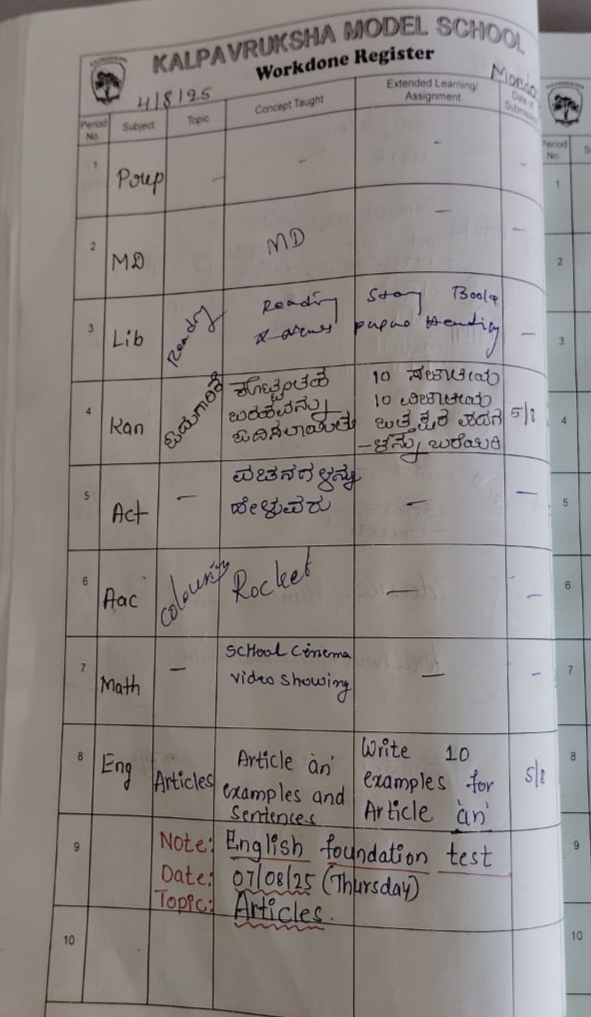 KALPAVRUKSHA MODEL SCHOOL
Workdone Register
4/8/25
Period No. Subject Topic Concept Taught Extended Learning/ Assignment Date of
1 - - - -
2 MD MD - -
3 Lib Reading Reading Story Book -
4 Kan 5/8
10 ಸಜಾತೀಯ
10 ವಿಜಾತೀಯ
ಬರಹವನ್ನು
5 Act - ವಚನಗಳನ್ನು - -
ಹೇಳುವರು
6 Aac Colouring Rocket - -
7 Math - School Cinema - -
video showing
8 Eng Articles Article 'an' Write 10 5/8
examples and examples for
sentences Article 'an'
9 Note: English foundation test
Date: 07/08/25 (Thursday)
Topic: Articles.
10
Period No.
1
2
3
4
5
6
7
8
9
10